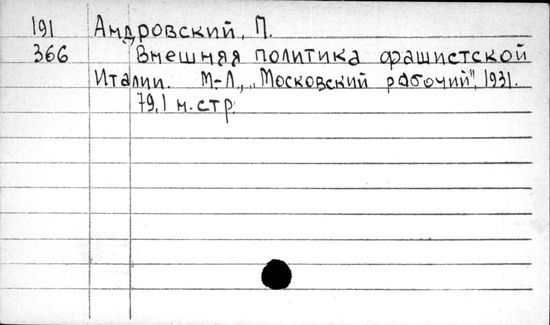 191 Андровский, П.
366 Внешняя политика фашистской
Италии. М-Л., „Московский рабочий", 1931.
79,1 н. стр.